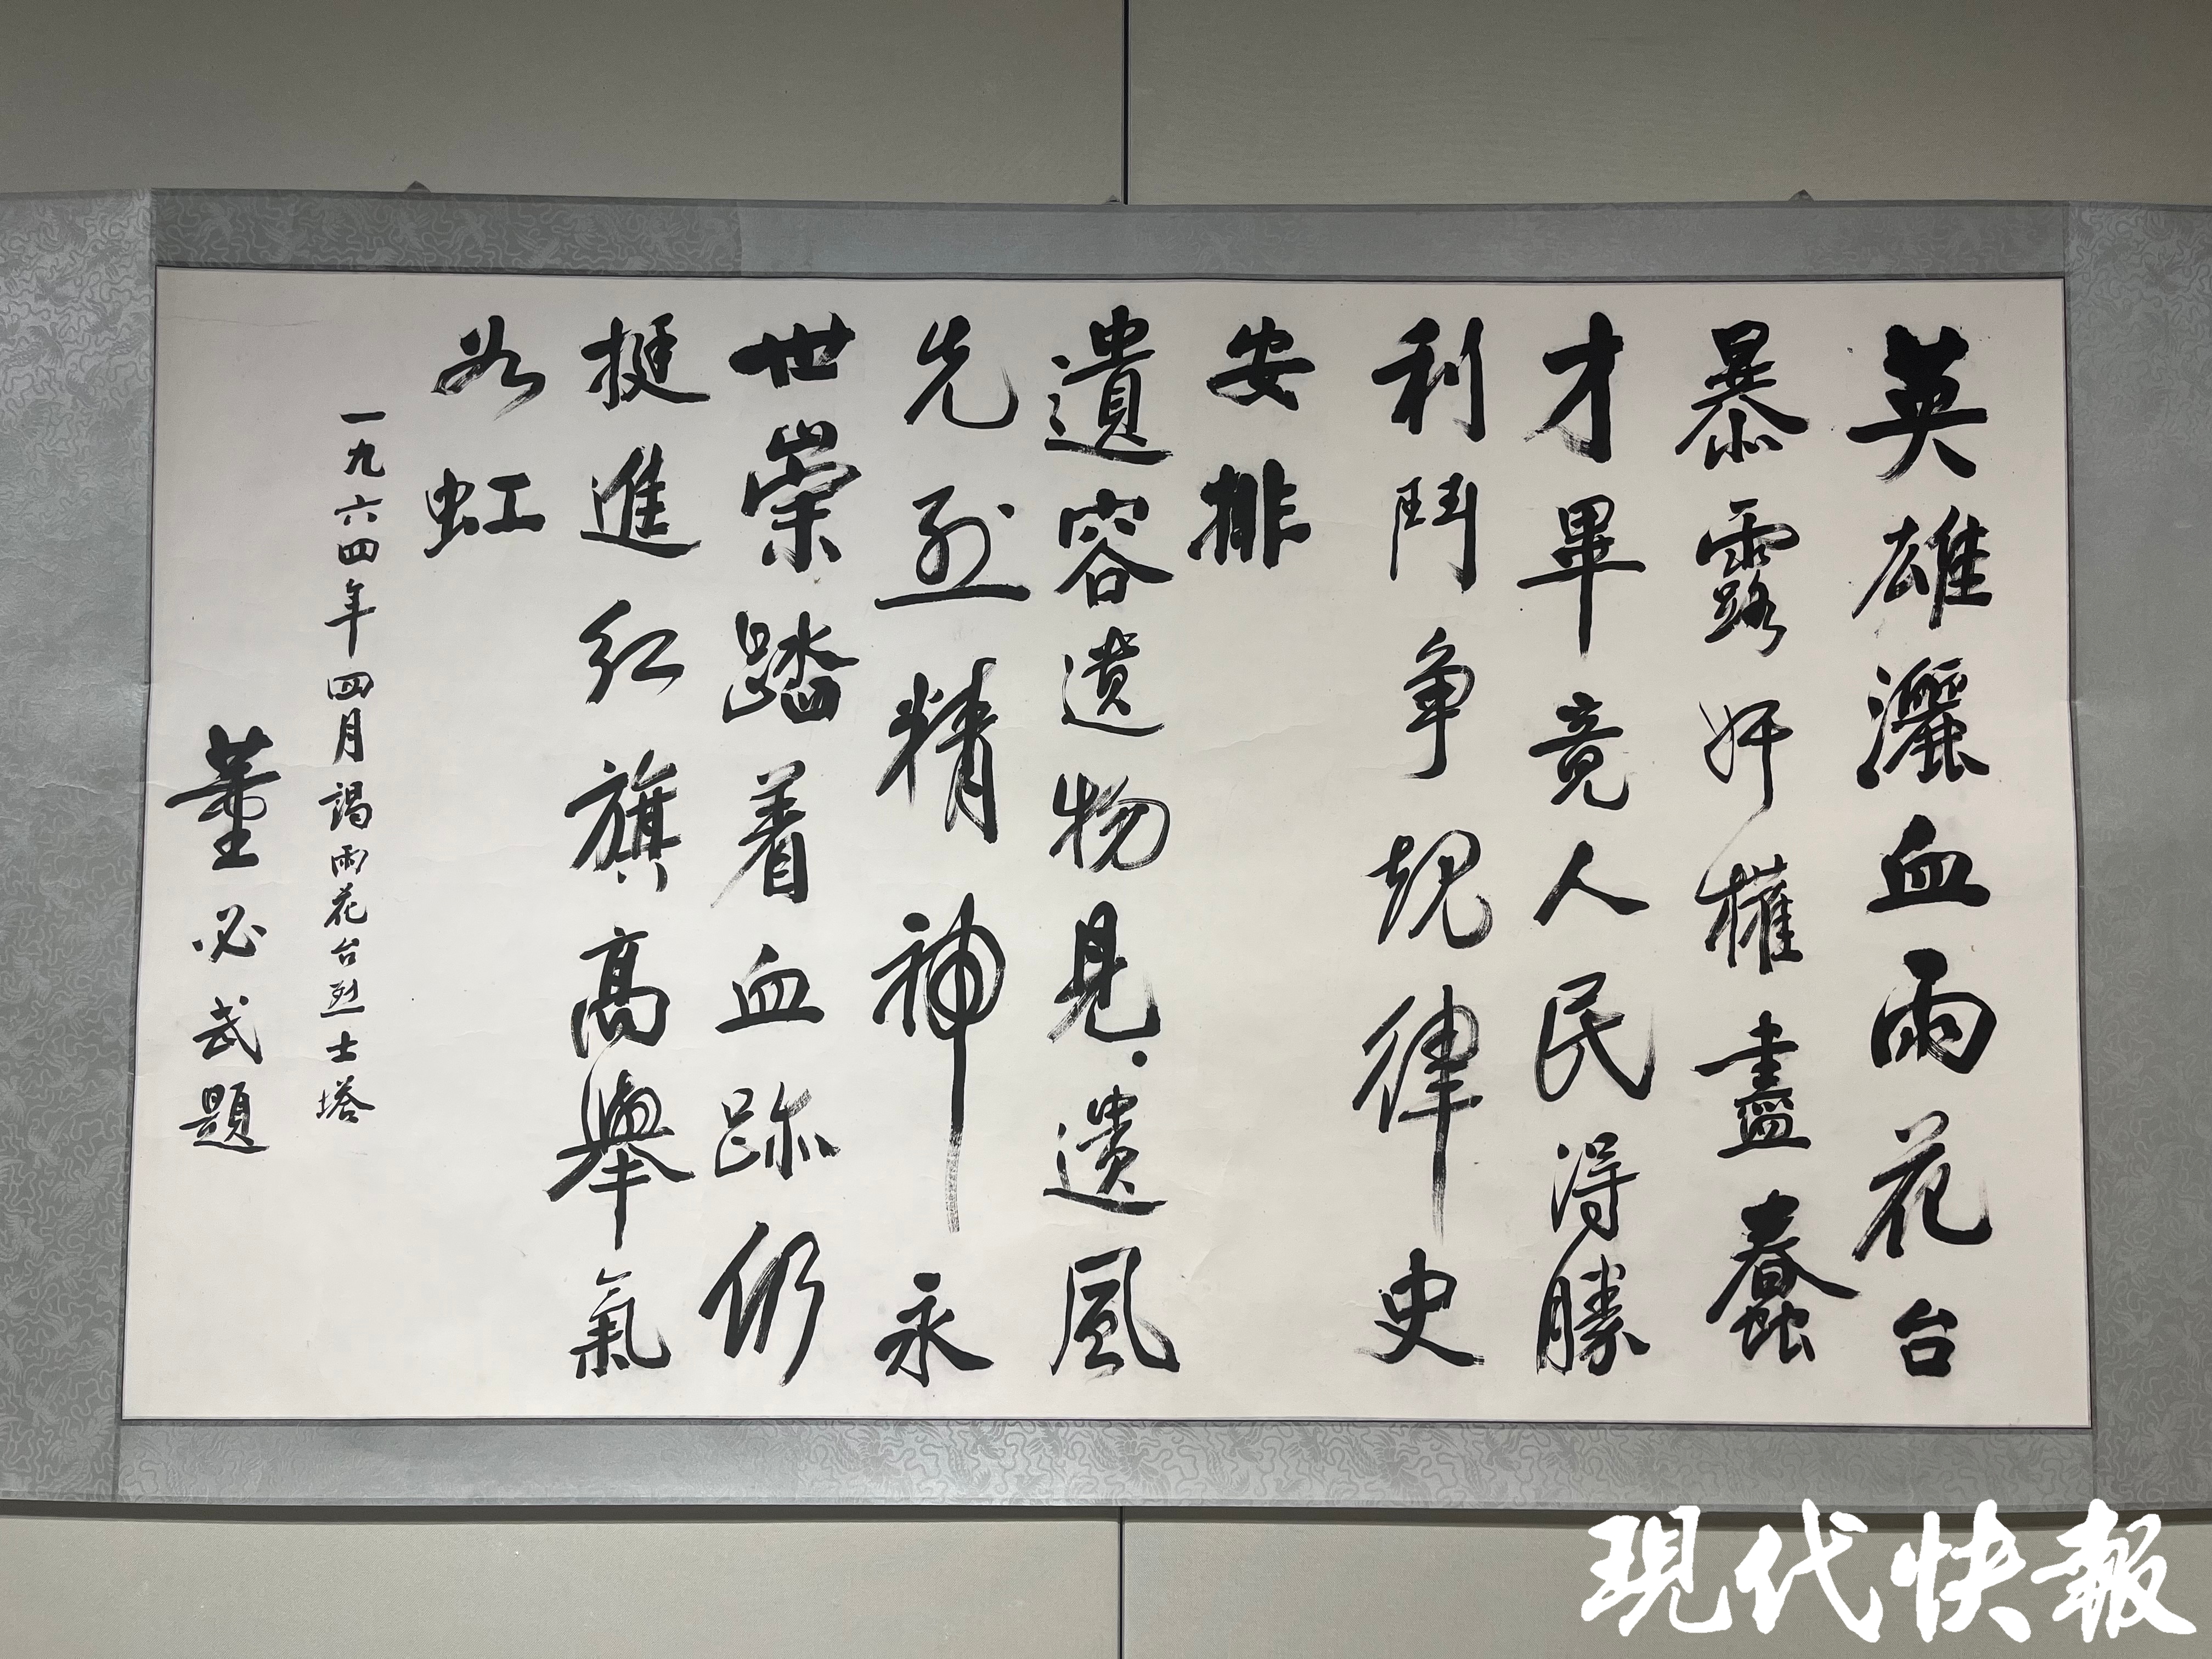 英雄灑血雨花台
暴露奸權盡蠢
才畢竟人民得勝
利鬥争規律史
安排
遺容遺物見遺風
先烈精神永
世崇踏着血跡仍
挺進红旗高舉氣
如虹
一九六四年四月謁雨花台烈士塔
董必武題
現代快報